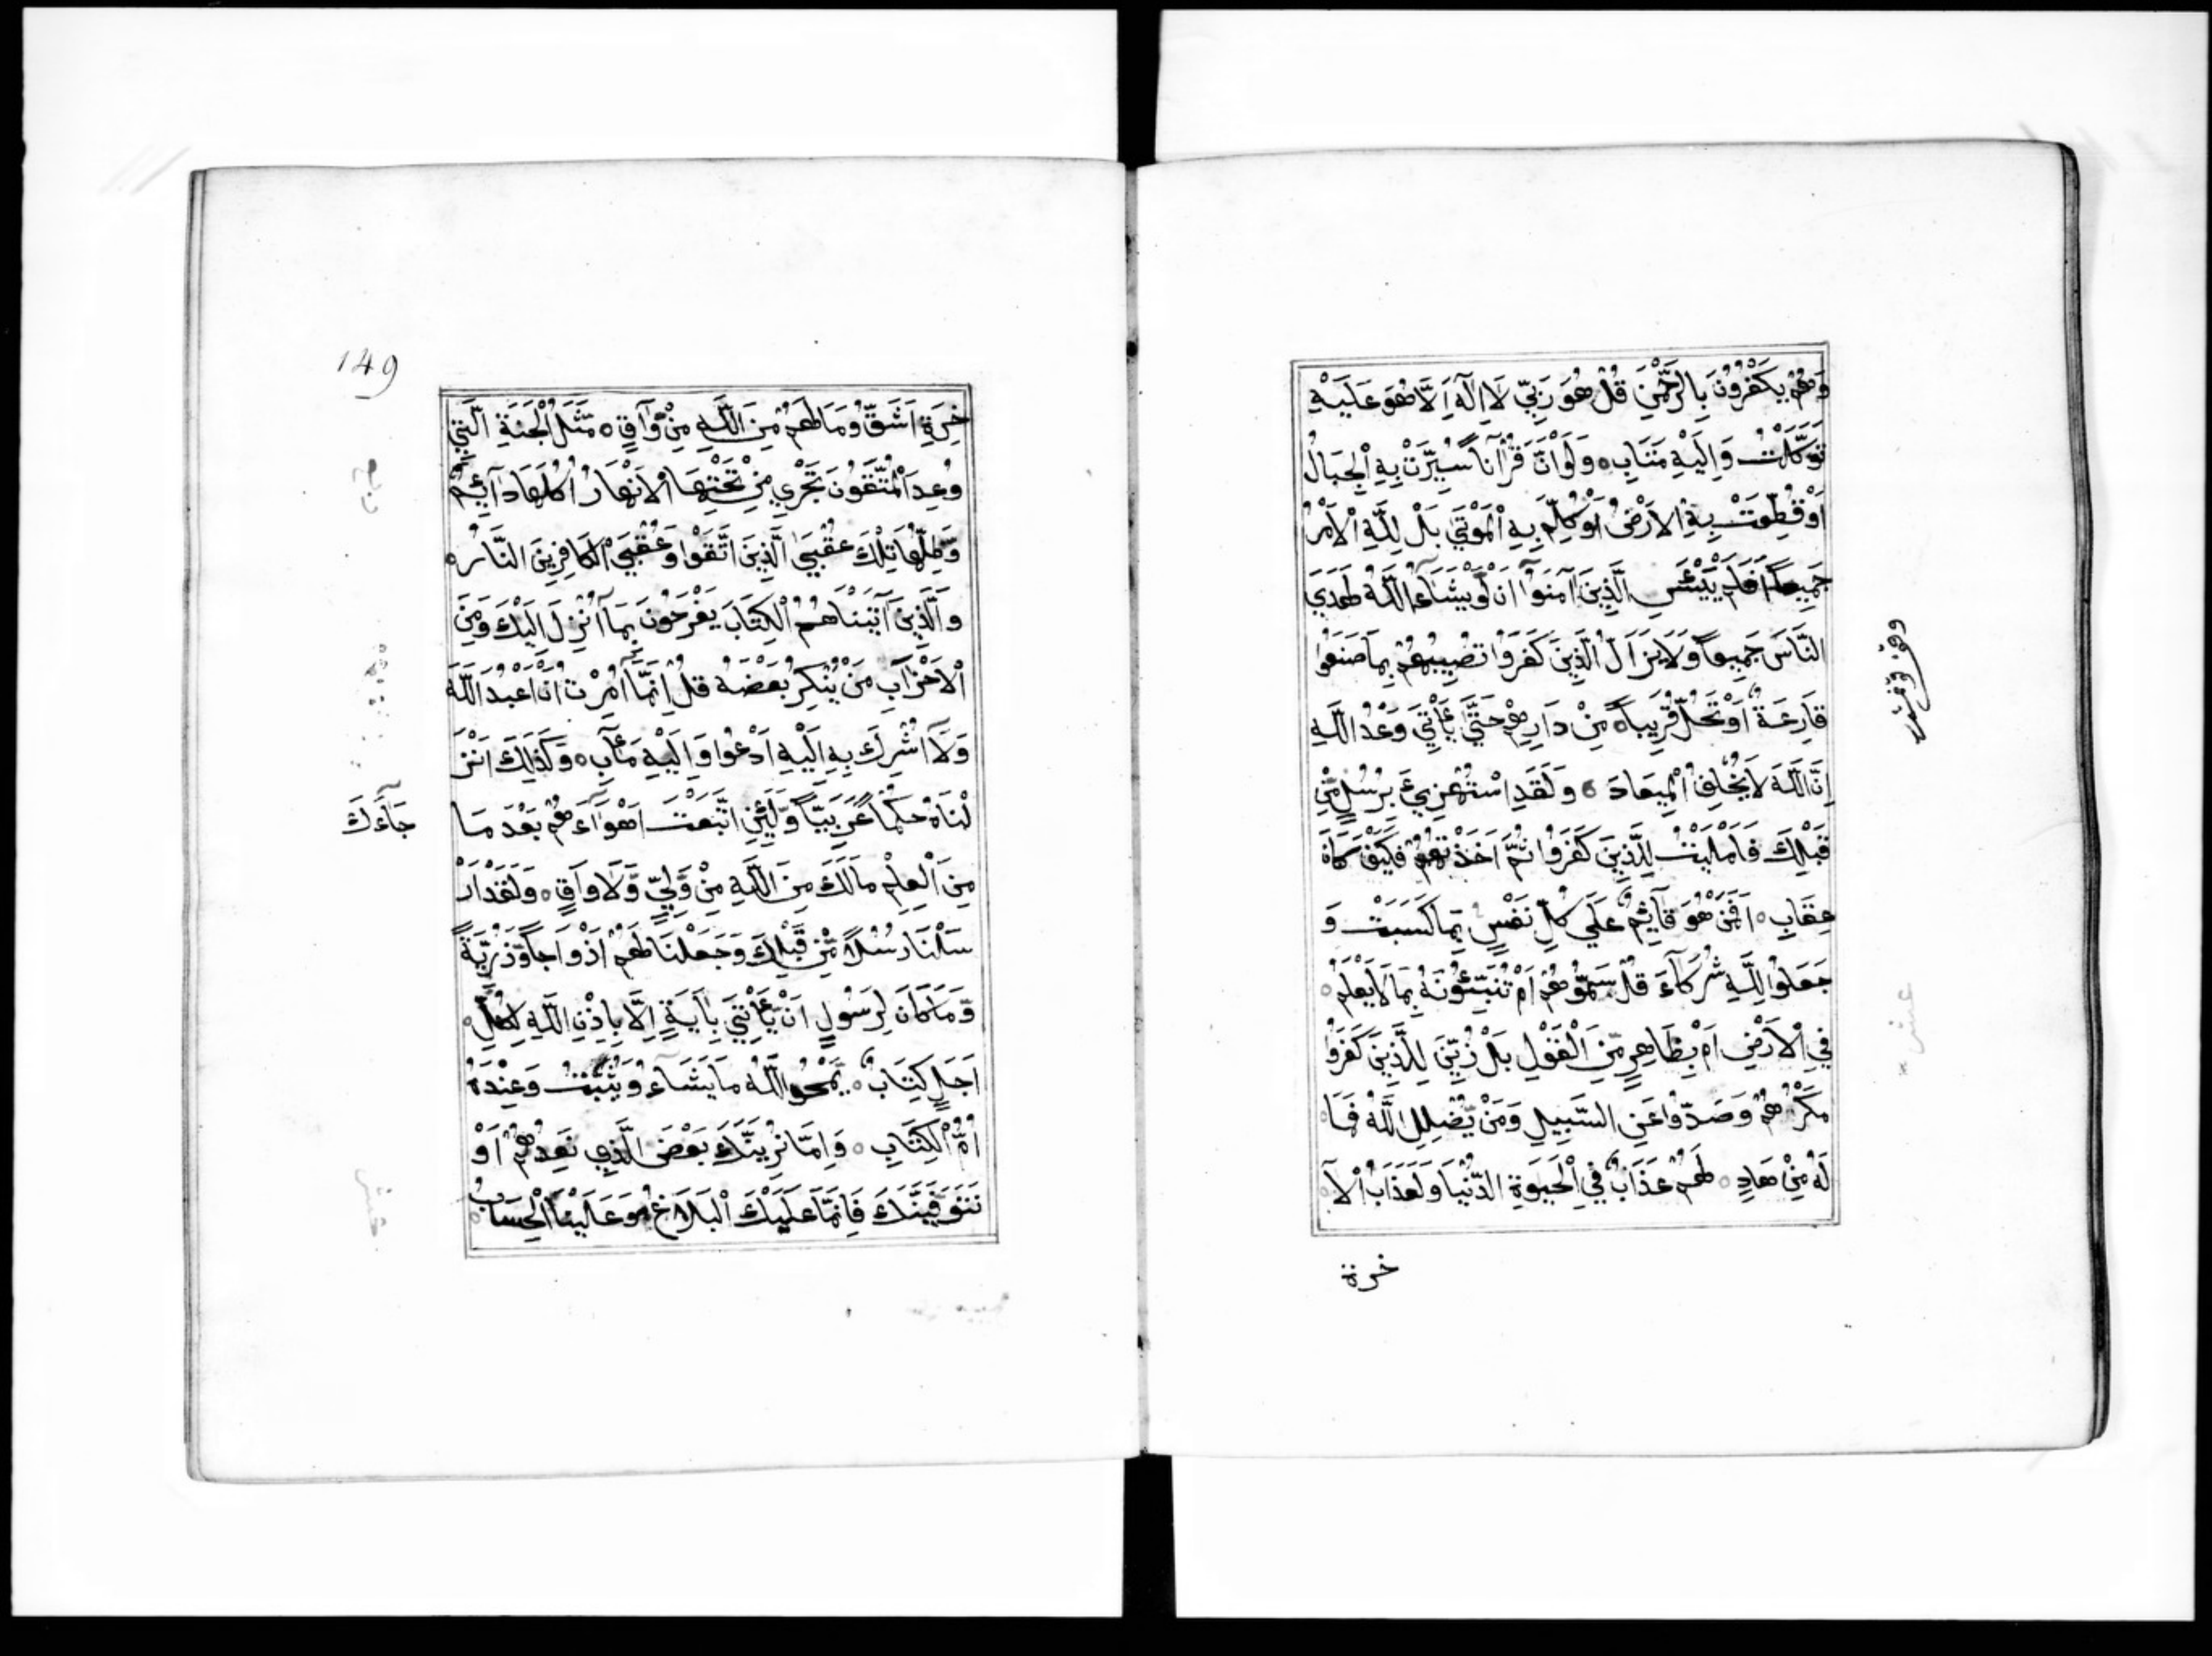 وَهُمْ يَكْفُرُونَ بِالرَّحْمٰنِ قُلْ هُوَ رَبِّي لَا اِلٰهَ اِلَّا هُوَ عَلَيْهِ
تَوَكَّلْتُ وَاِلَيْهِ مَتَابِ ه وَلَوْ اَنَّ قُرْآنًا سُيِّرَتْ بِهِ الْجِبَالُ
اَوْ قُطِّعَتْ بِهِ الْاَرْضُ اَوْ كُلِّمَ بِهِ الْمَوْتَي بَلْ لِلَّهِ الْاَمْرُ
جَمِيعًا اَفَلَمْ يَيْئَسِ الَّذِينَ اٰمَنُوا اَنْ لَوْ يَشَآءُ اللَّهُ لَهَدَي
النَّاسَ جَمِيعًا وَلَا يَزَالُ الَّذِينَ كَفَرُوا تُصِيبُهُمْ بِمَا صَنَعُوا
قَارِعَةٌ اَوْ تَحُلُّ قَرِيبًا مِنْ دَارِهِمْ حَتَّي يَأْتِيَ وَعْدُ اللَّهِ
اِنَّ اللَّهَ لَا يُخْلِفُ الْمِيعَادَ ه وَلَقَدِ اسْتُهْزِيءَ بِرُسُلٍ مِّنْ
قَبْلِكَ فَاَمْلَيْتُ لِلَّذِينَ كَفَرُوا ثُمَّ اَخَذْتُهُمْ فَكَيْفَ كَانَ
عِقَابِ ه اَفَمَنْ هُوَ قَآئِمٌ عَلَي كُلِّ نَفْسٍ بِمَا كَسَبَتْ وَ
جَعَلُوا لِلَّهِ شُرَكَآءَ قُلْ سَمُّوهُمْ اَمْ تُنَبِّئُونَهُ بِمَا لَا يَعْلَمُ ه
فِي الْاَرْضِ اَمْ بِظَاهِرٍ مِّنَ الْقَوْلِ بَلْ زُيِّنَ لِلَّذِينَ كَفَرُوا
مَكْرُهُمْ وَصَدُّوا عَنِ السَّبِيلِ وَمَنْ يُّضْلِلِ اللَّهُ فَمَا ه
لَهُ مِنْ هَادٍ ه لَهُمْ عَذَابٌ فِي الْحَيٰوةِ الدُّنْيَا وَلَعَذَابُ الْآ ه
خرة
149
خِرَةِ اَشَقُّ وَمَا لَهُمْ مِنَ اللَّهِ مِنْ وَّاقٍ ه مَثَلُ الْجَنَّةِ الَّتِي
وُعِدَ الْمُتَّقُونَ تَجْرِي مِنْ تَحْتِهَا الْاَنْهَارُ اُكُلُهَا دَآئِمٌ
وَّظِلُّهَا تِلْكَ عُقْبَي الَّذِينَ اتَّقَوْا وَعُقْبَي الْكَافِرِينَ النَّارُ ه
وَالَّذِينَ اٰتَيْنَاهُمُ الْكِتَابَ يَفْرَحُونَ بِمَآ اُنْزِلَ اِلَيْكَ وَمِنَ
الْاَحْزَابِ مَنْ يُنْكِرُ بَعْضَهُ قُلْ اِنَّمَآ اُمِرْتُ اَنْ اَعْبُدَ اللَّهَ
وَلَآ اُشْرِكَ بِهِ اِلَيْهِ اَدْعُوا وَاِلَيْهِ مَاٰبِ ه وَكَذٰلِكَ اَنْزَ
لْنَاهُ حُكْمًا عَرَبِيًّا وَّلَئِنِ اتَّبَعْتَ اَهْوَآءَهُمْ بَعْدَ مَا
جَآءَكَ
مِنَ الْعِلْمِ مَا لَكَ مِنَ اللَّهِ مِنْ وَّلِيٍّ وَّلَا وَاقٍ ه وَلَقَدْ اَرْ
سَلْنَا رُسُلًا مِّنْ قَبْلِكَ وَجَعَلْنَا لَهُمْ اَزْوَاجًا وَّذُرِّيَّةً
وَّمَا كَانَ لِرَسُولٍ اَنْ يَّأْتِيَ بِاٰيَةٍ اِلَّا بِاِذْنِ اللَّهِ لِكُلِّ ه
اَجَلٍ كِتَابٌ ه يَمْحُو اللَّهُ مَا يَشَآءُ وَيُثْبِتُ وَعِنْدَهُ
اُمُّ الْكِتَابِ ه وَاِمَّا نُرِيَنَّكَ بَعْضَ الَّذِي نَعِدُهُمْ اَوْ
نَتَوَفَّيَنَّكَ فَاِنَّمَا عَلَيْكَ الْبَلَاغُ وَعَلَيْنَا الْحِسَابُ ه